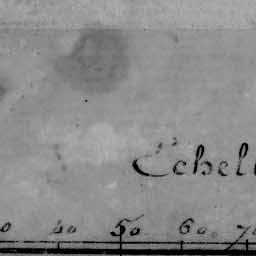 Echel
0 40 50 60 70